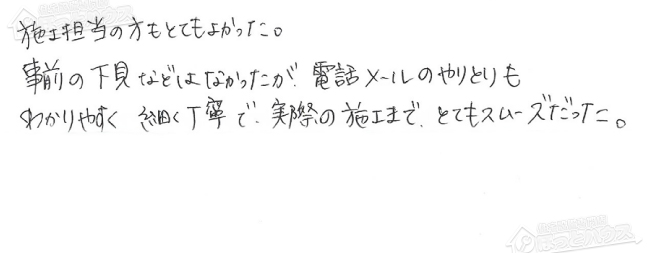 施工担当の方もとてもよかった。
事前の下見などはなかったが、電話メールのやりとりも
わかりやすく 細く丁寧で、実際の施工まで、とてもスムーズだった。